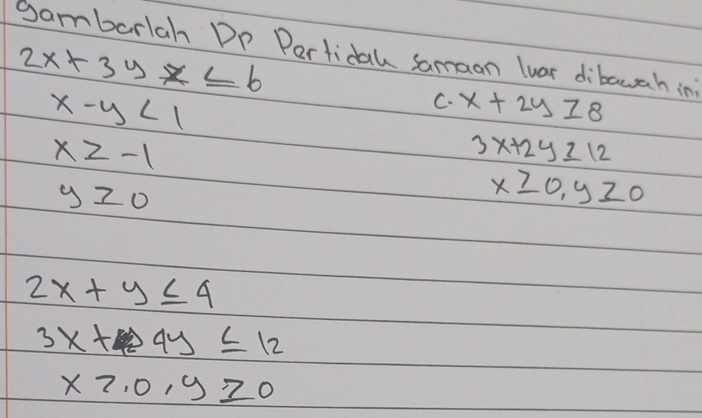 gambarlah Dp Pertidak samaan luar dibawah ini
2x + 3y ≤ 6
x - y < 1
x ≥ -1
y ≥ 0
c. x + 2y ≥ 8
3x+2y ≥ 12
x ≥ 0, y ≥ 0
2x + y ≤ 4
3x + 4y ≤ 12
x ≥ 0, y ≥ 0